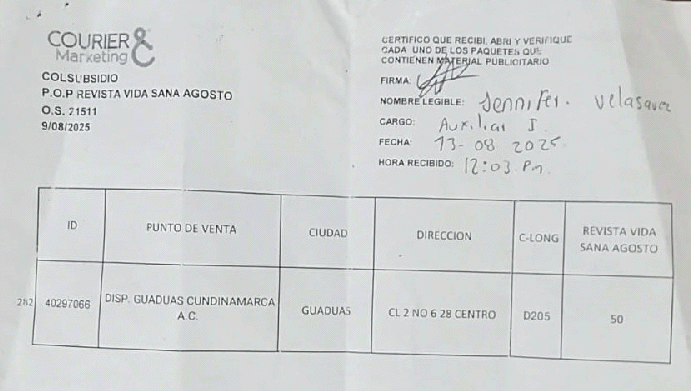 COURIER &
Marketing
COLSUBSIDIO
P.O.P REVISTA VIDA SANA AGOSTO
O.S. 21511
9/08/2025
CERTIFICO QUE RECIBI, ABRI Y VERIFIQUE
CADA UNO DE LOS PAQUETES QUE
CONTIENEN MATERIAL PUBLICITARIO
FIRMA:
NOMBRE LEGIBLE: Jennifer. Velasquez
CARGO: Auxiliar I.
FECHA: 13-08 2025
HORA RECIBIDO: 12:03 Pm.
ID PUNTO DE VENTA CIUDAD DIRECCION C-LONG REVISTA VIDA SANA AGOSTO
282 40297066 DISP. GUADUAS CUNDINAMARCA A.C. GUADUAS CL 2 NO 6 28 CENTRO D205 50